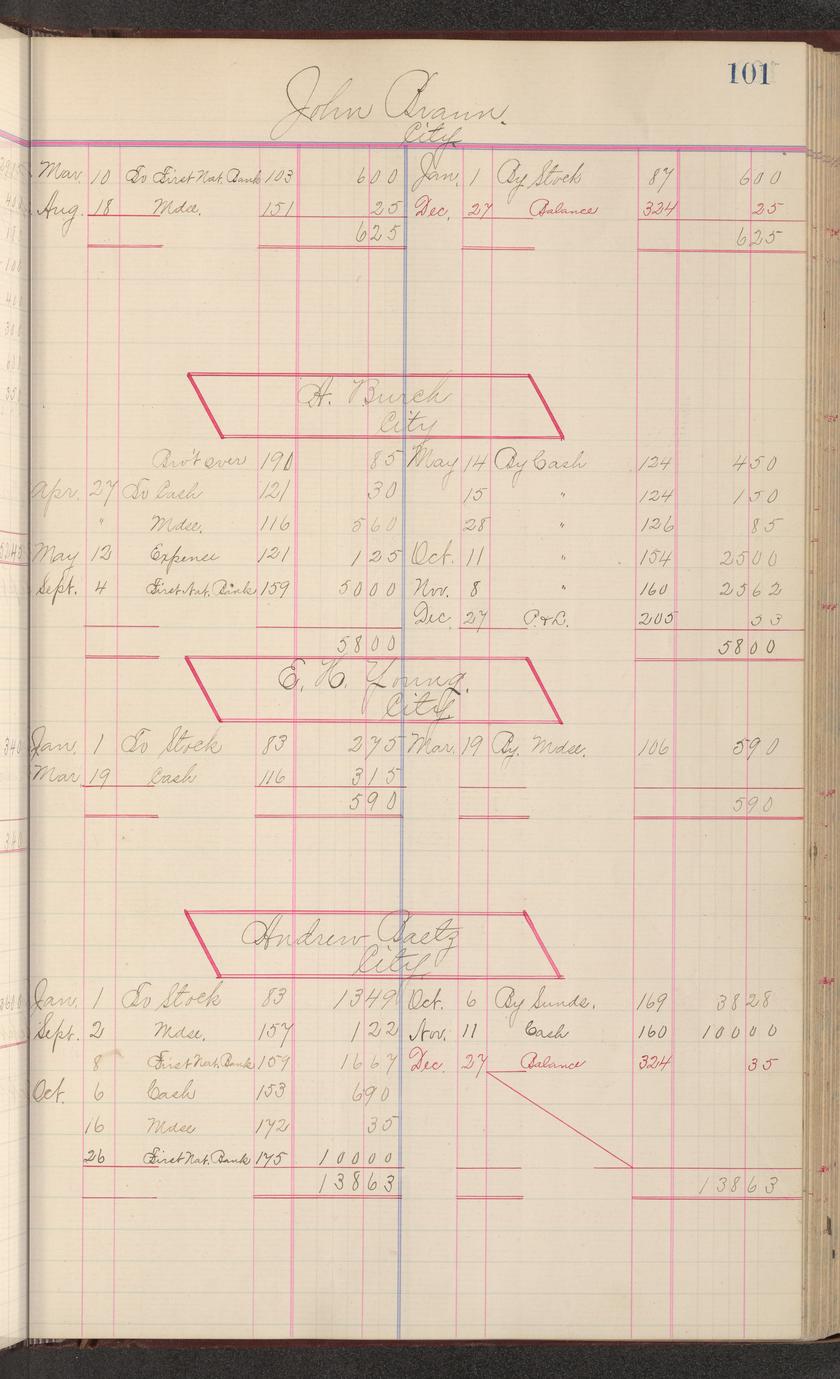 101
John Braun.
City.
Mar. 10 To First Nat. Bank 103 600 Jan. 1 By Stock 87 600
Aug. 18 Mdse. 151 25 Dec. 27 Balance 324 25
625 625
A. Burch
City
Bro't over 190 85 May 14 By Cash 124 450
Apr. 27 To Cash 121 30 15 " 124 150
" Mdse. 116 560 28 " 126 85
May 12 Expence 121 125 Oct. 11 " 154 2500
Sept. 4 First Nat. Bank 159 5000 Nov. 8 " 160 2562
Dec. 27 P. & L. 205 53
5800 5800
E. H. Young.
City
Jan. 1 To Stock 83 275 Mar. 19 By. Mdse. 106 590
Mar 19 Cash 116 315
590 590
Andrew Baetz
City
Jan. 1 To Stock 83 1349 Oct. 6 By Sunds. 169 3828
Sept. 2 Mdse. 157 122 Nov. 11 Cash 160 10000
8 First Nat. Bank 159 1667 Dec. 27 Balance 324 35
Oct. 6 Cash 153 690
16 Mdse 172 35
26 First Nat. Bank 175 10000
13863 13863